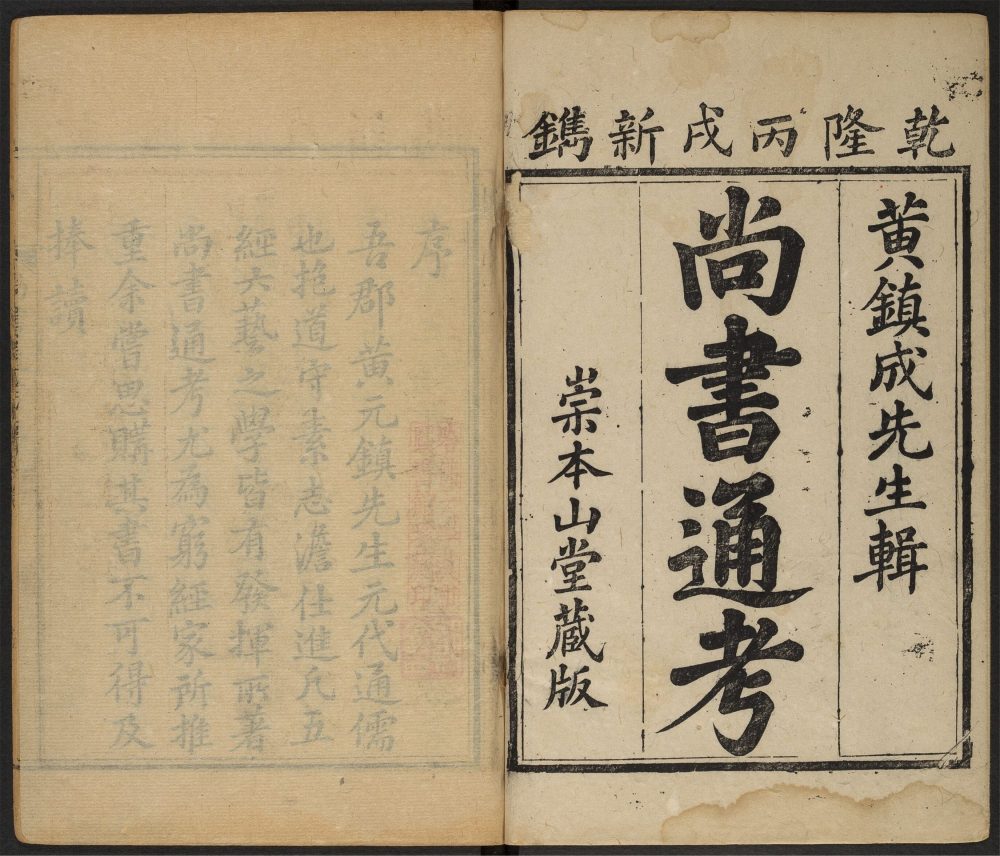 乾隆丙戌新鐫
黃鎮成先生輯
尚書通考
崇本山堂蔵版
序
吾郡黃元鎮先生元代通儒
也抱道守素志澹仕進凡五
經六藝之學皆有發揮所著
尚書通考尤為窮經家所推
重余嘗思購其書不可得及
捧讀